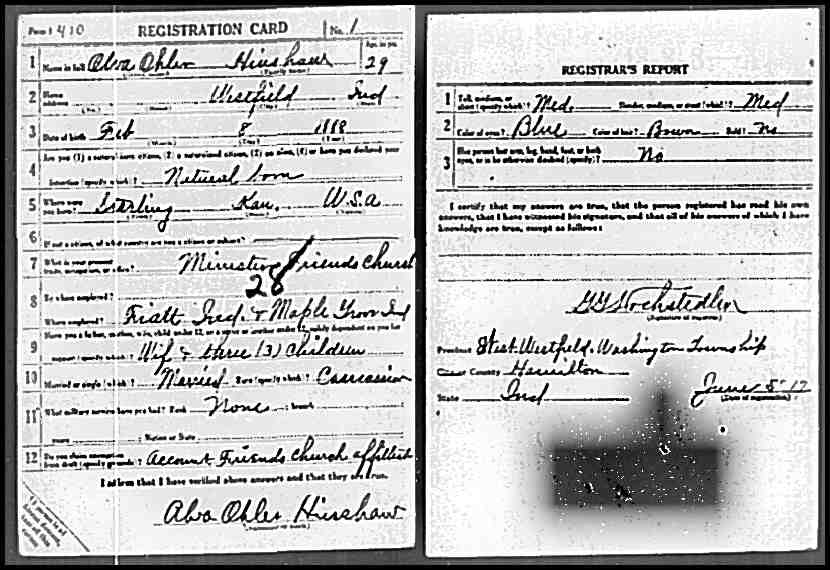 Form 1 410 REGISTRATION CARD No. 1
1 Name in full Alva Ohler Hinshaw Age, in yrs. 29
(Family name)
2 Home address Westfield Ind
(No.) (Street) (City) (State)
3 Date of birth Feb 8 1888
(Month) (Day) (Year)
4 Are you (1) a natural born citizen, (2) a naturalized citizen, (3) an alien, (4) or have you declared your
intention (specify which)? Natural born
5 Where were you born? Sterling Kan. U.S.A
(Town) (State) (Nation)
6 If not a citizen, of what country are you a citizen or subject?
7 What is your present trade, occupation, or office? Minister Friends Church
28
8 By whom employed?
Where employed? Ind. & Maple Grove Ind
9 Have you a father, mother, wife, child under 12, or a sister or brother under 12, solely dependent on you for
support (specify which)? Wif & three (3) children
10 Married or single (which)? Married Race (specify which)? Caucasion
11 What military service have you had? Rank None ; branch
years ; Nation or State
12 Do you claim exemption from draft (specify grounds)? Account Friends Church
I affirm that I have verified above answers and that they are true.
Alva Ohler Hinshaw
REGISTRAR'S REPORT
1 Tall, medium, or short (specify which)? Med. Slender, medium, or stout (which)? Med
2 Color of eyes? Blue Color of hair? Brown Bald? No
3 Has person lost arm, leg, hand, foot, or both eyes, or is he otherwise disabled (specify)? No
I certify that my answers are true, that the person registered has read his own
answers, that I have witnessed his signature, and that all of his answers of which I have
knowledge are true, except as follows:
(Signature of registrar)
Precinct West Westfield, Washington Township
County Hamilton
State Ind June 5-17
(Date of registration)